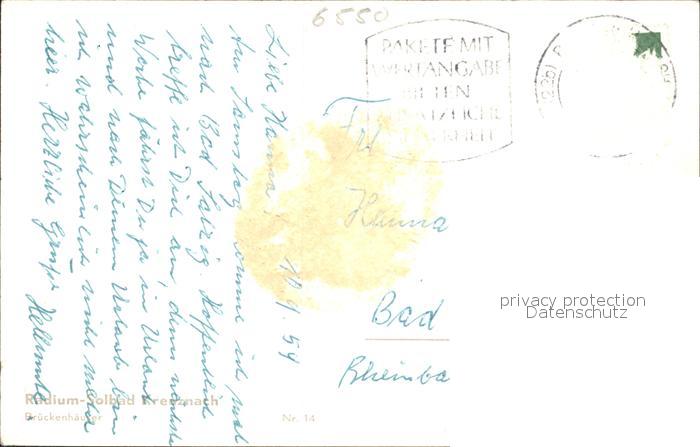 6550
PAKETE MIT
WERTANGABE
BIETEN
ZUSÄTZLICHE
SICHERHEIT
Liebe Hanna!
10.9.54
Am Samstag komme ich mal
nach Bad Salzig. Hoffentlich
treffe ich Dich an, denn nächste
Woche fährst Du ja in Urlaub
und nach Deinem Urlaub bin
ich wahrscheinlich nicht mehr
hier. Herzliche Grüße
Frl
Hanna
Bad
Rheinba
privacy protection
Datenschutz
Radium-Solbad Kreuznach
Brückenhäuser
Nr. 14